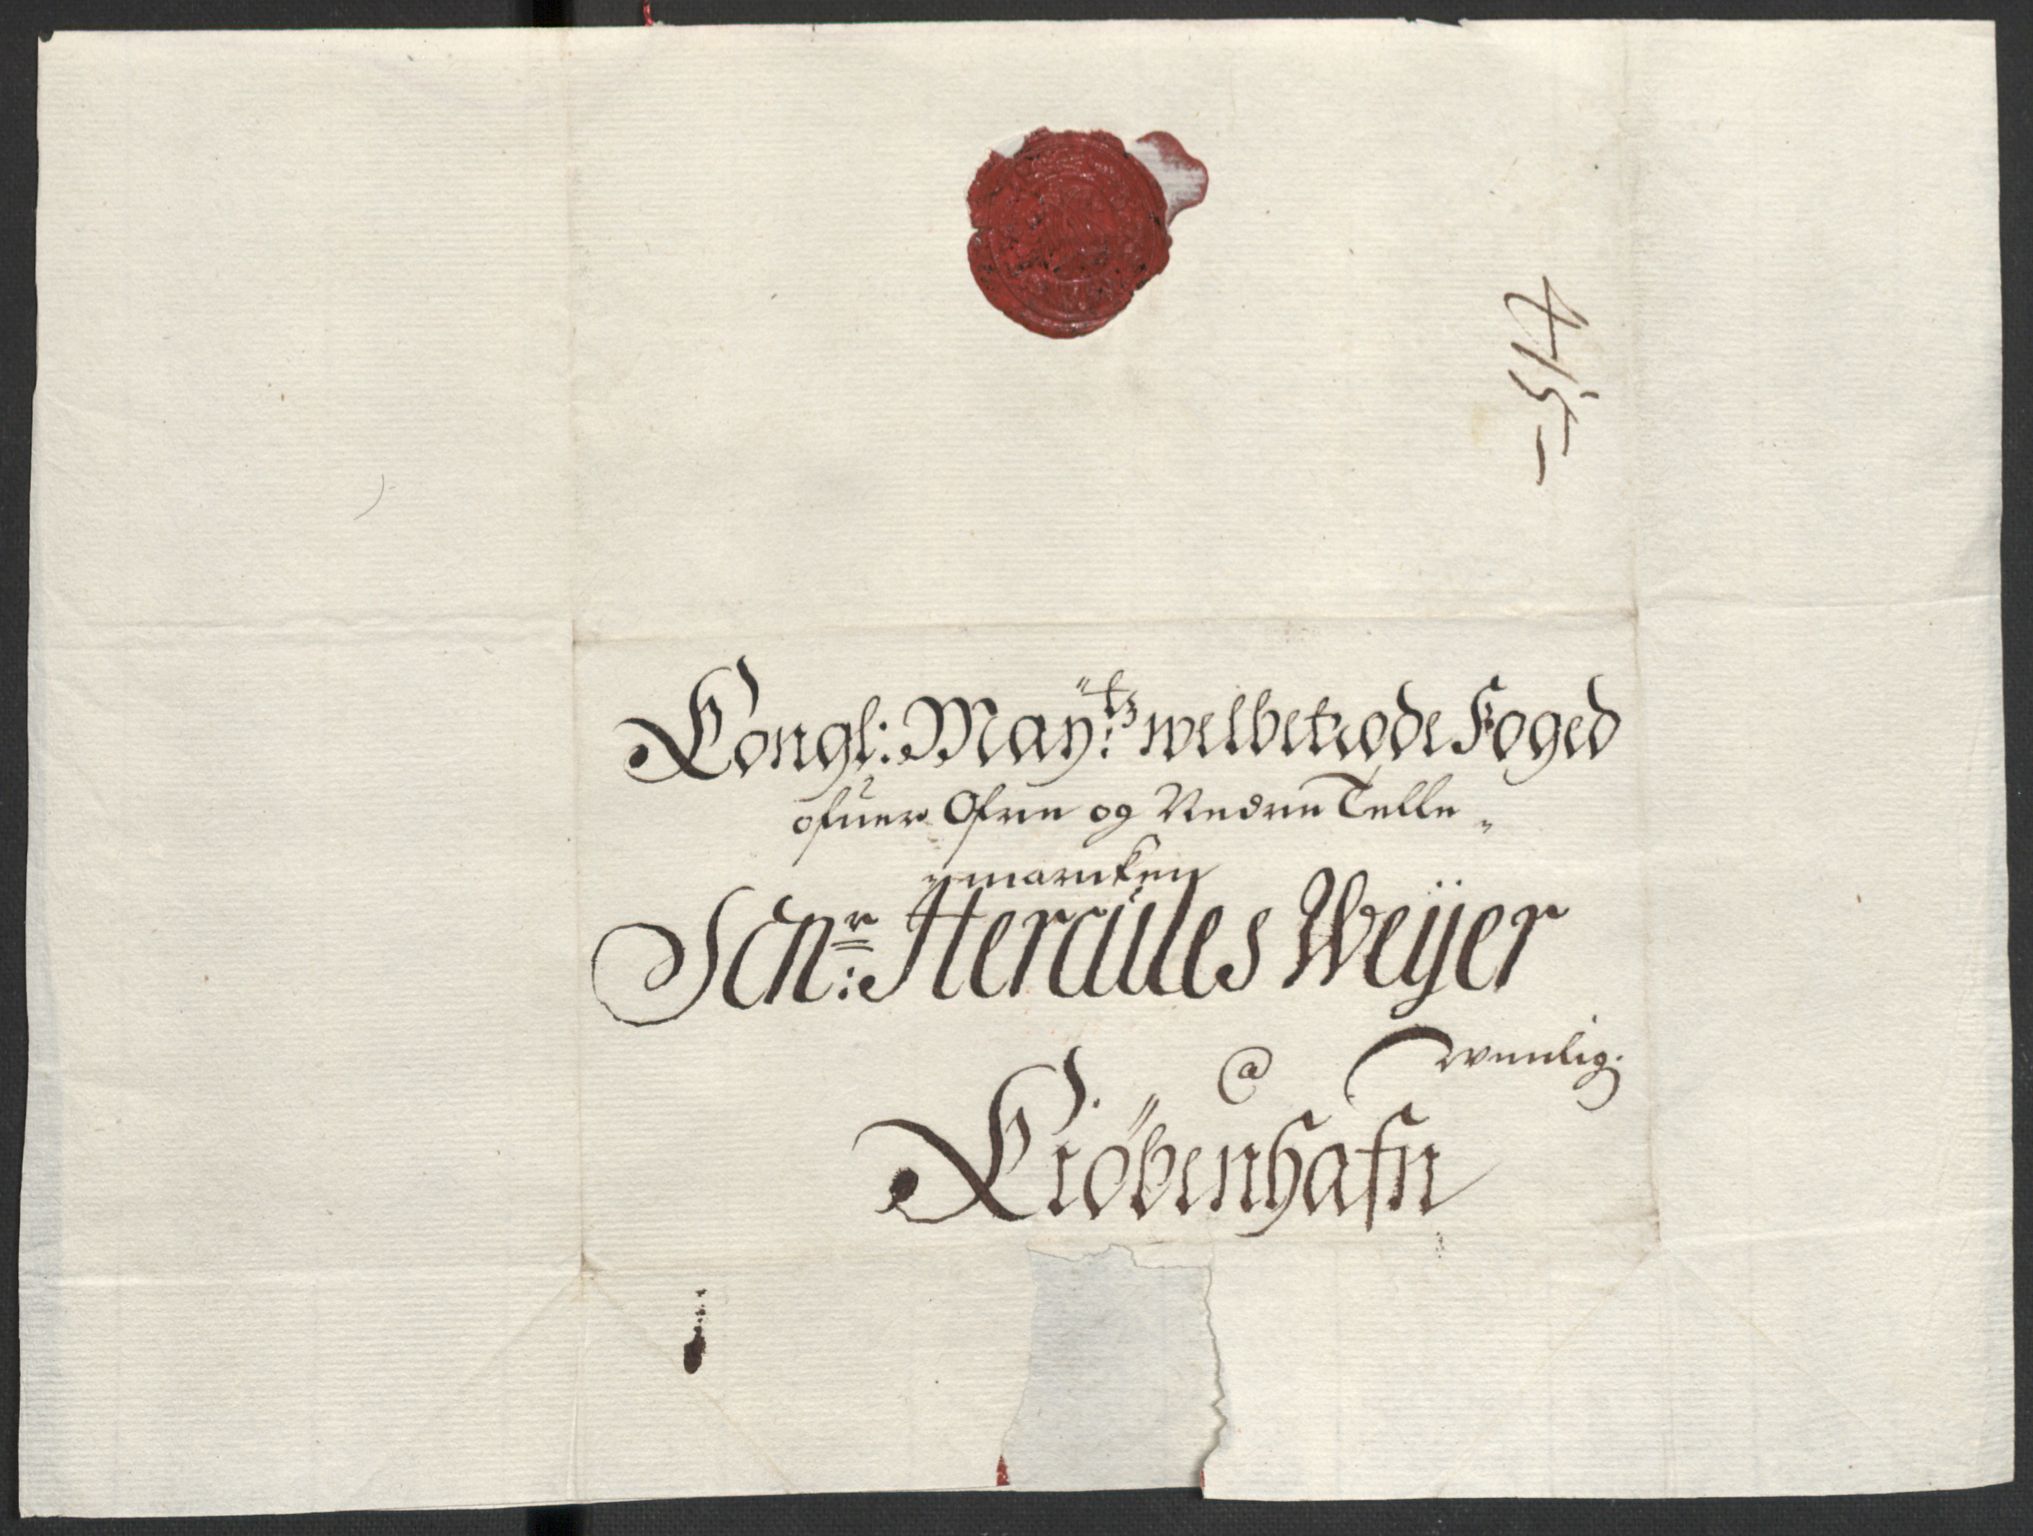 415-
Kongl: May:tz welbetrode Foged
ofuer Øfre og Nedre Telle„
„marcken
Sen:r Hercules Weÿer
wenlig:
a
Kiöbenhafn